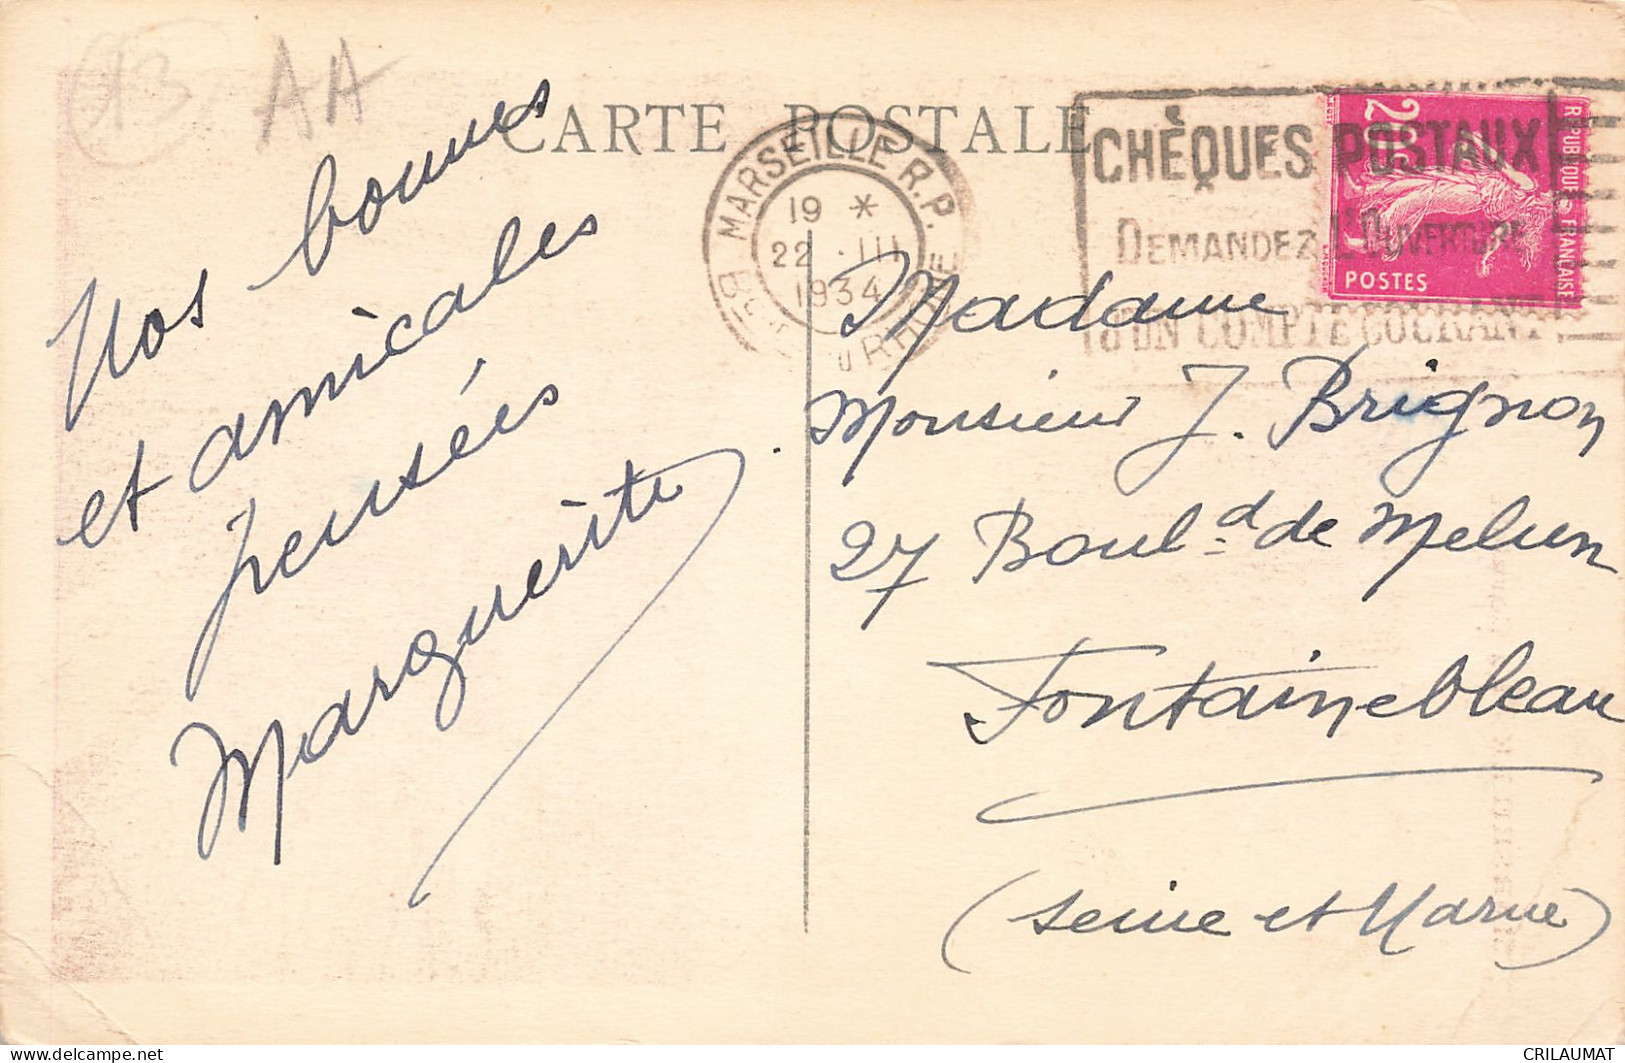 13 AA
CARTE POSTALE
MARSEILLE R.P.
19 *
22 · III
1934
CHÈQUES POSTAUX
DEMANDEZ L'OUVERTURE
D'UN COMPTE COURANT
REPUBLIQUE FRANÇAISE
20c
POSTES
Nos bonnes
et amicales
pensées
Marguerite
Madame
Monsieur J. Brignon
27 Boul.d de Melun
Fontainebleau
(Seine et Marne)
CRILAUMAT